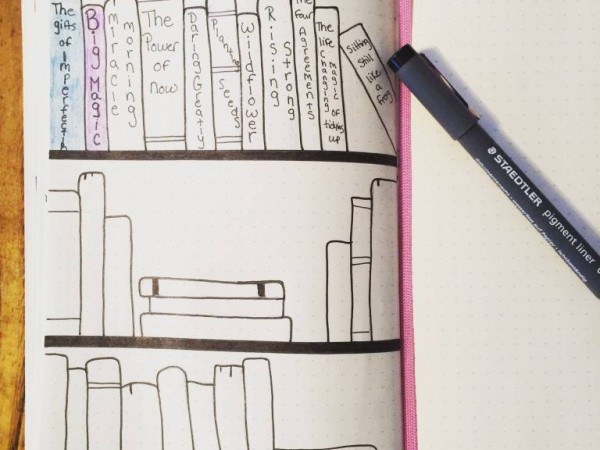 The gifts of Imperfection
Big Magic
miracle morning
The Power of Now
Daring Greatly
Planting Seeds
Wildflower
Rising Strong
The Four Agreements
The life changing magic of tidying up
Sitting Still like a frog
STAEDTLER pigment liner